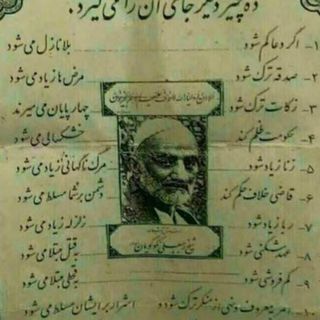 ده چیز دیگر جای آن را می گیرد:
۱- اگر دعا کم شود بلا نازل می شود
۲- صدقه ترک شود مرض ها زیاد می شود
۳- زکات ترک شود چهارپایان می میرند
۴- حکومت ظلم کند خشکسالی می شود
۵- زنا زیاد شود مرگ ناگهانی زیاد می شود
۶- قاضی خلاف حکم کند دشمن بر شما مسلط می شود
۷- ربا زیاد شود زلزله زیاد می شود
۸- عهد شکنی شود به قتل مبتلا می شود
۹- کم فروشی شود به قحطی مبتلا می شود
۱۰- امر به معروف و نهی از منکر ترک شود اشرار بر ایشان مسلط می شود
شیخ رجبعلی نکوگویان